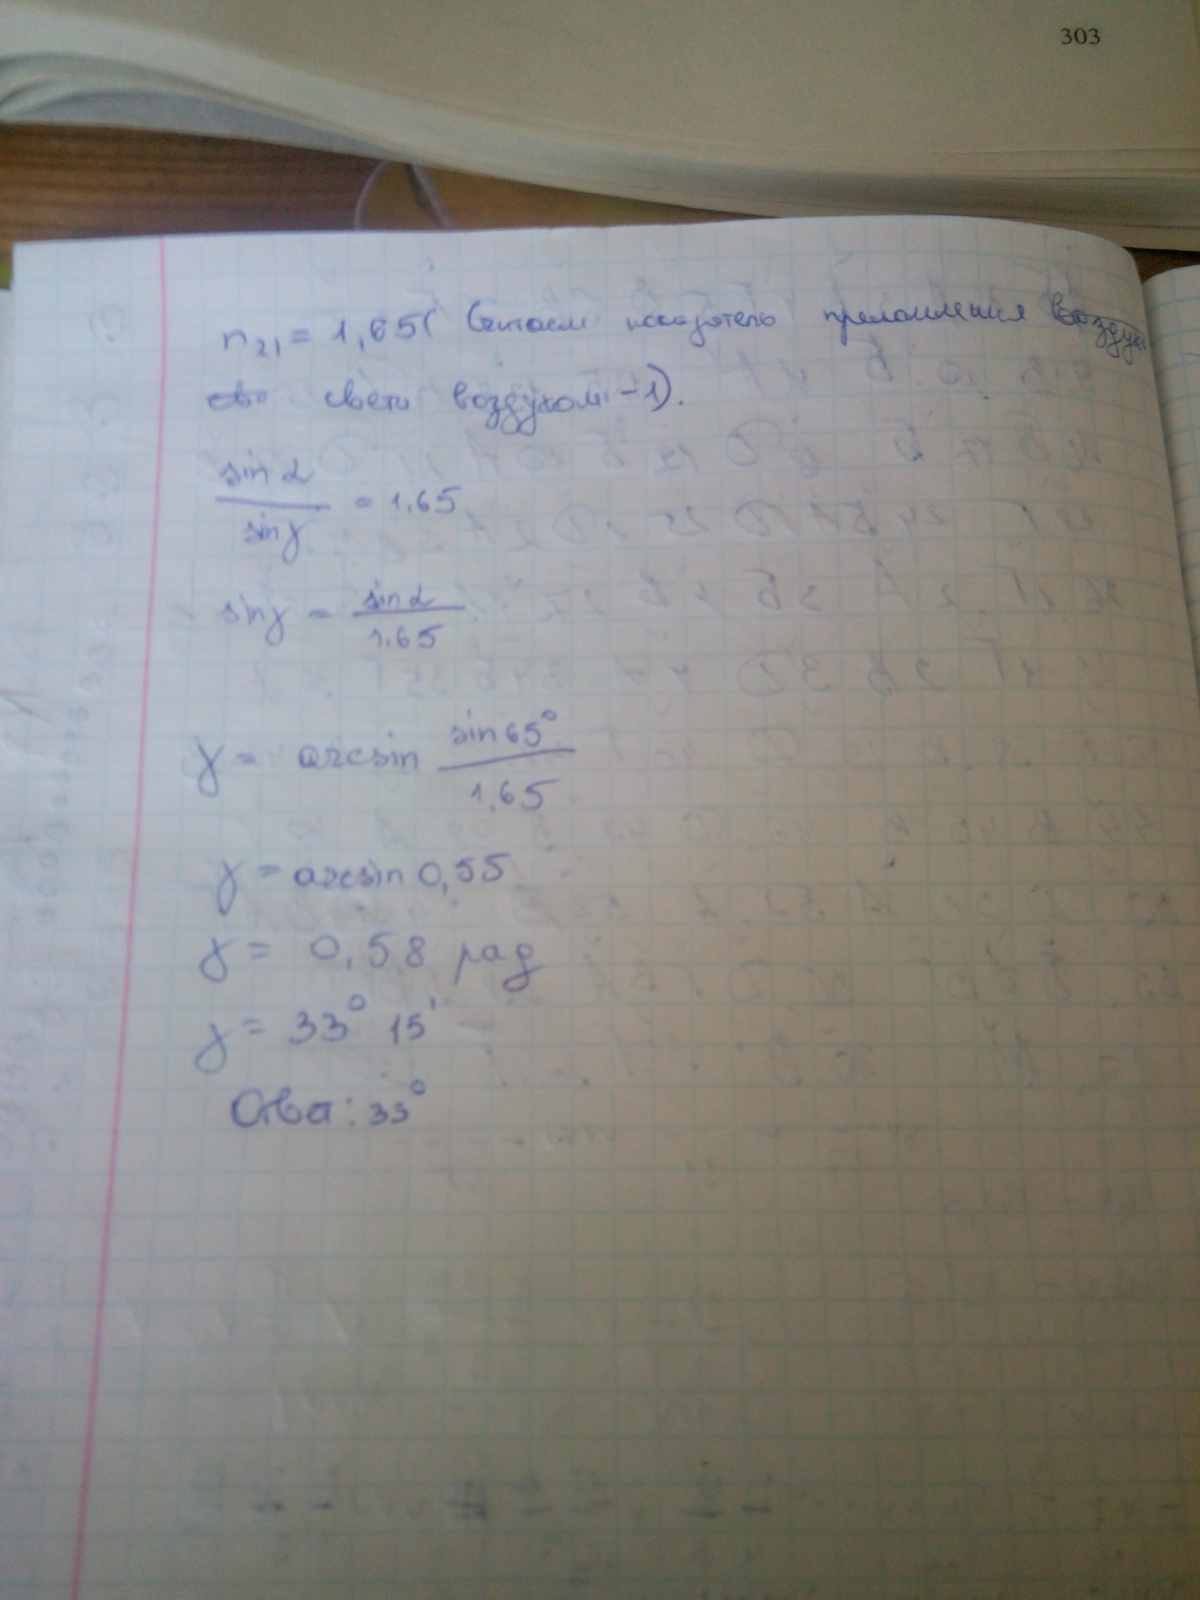 303
n₂₁ = 1,65 ( Считаем показатель преломления
света воздухом - 1).
sin α / sin γ = 1,65
sin γ = sin α / 1,65
γ = arcsin sin 65° / 1,65
γ = arcsin 0,55
γ = 0,58 рад
γ = 33° 15'
Ответ: 33°